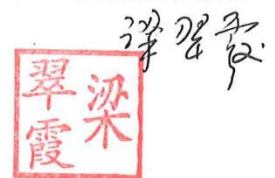 梁翠霞
梁翠霞